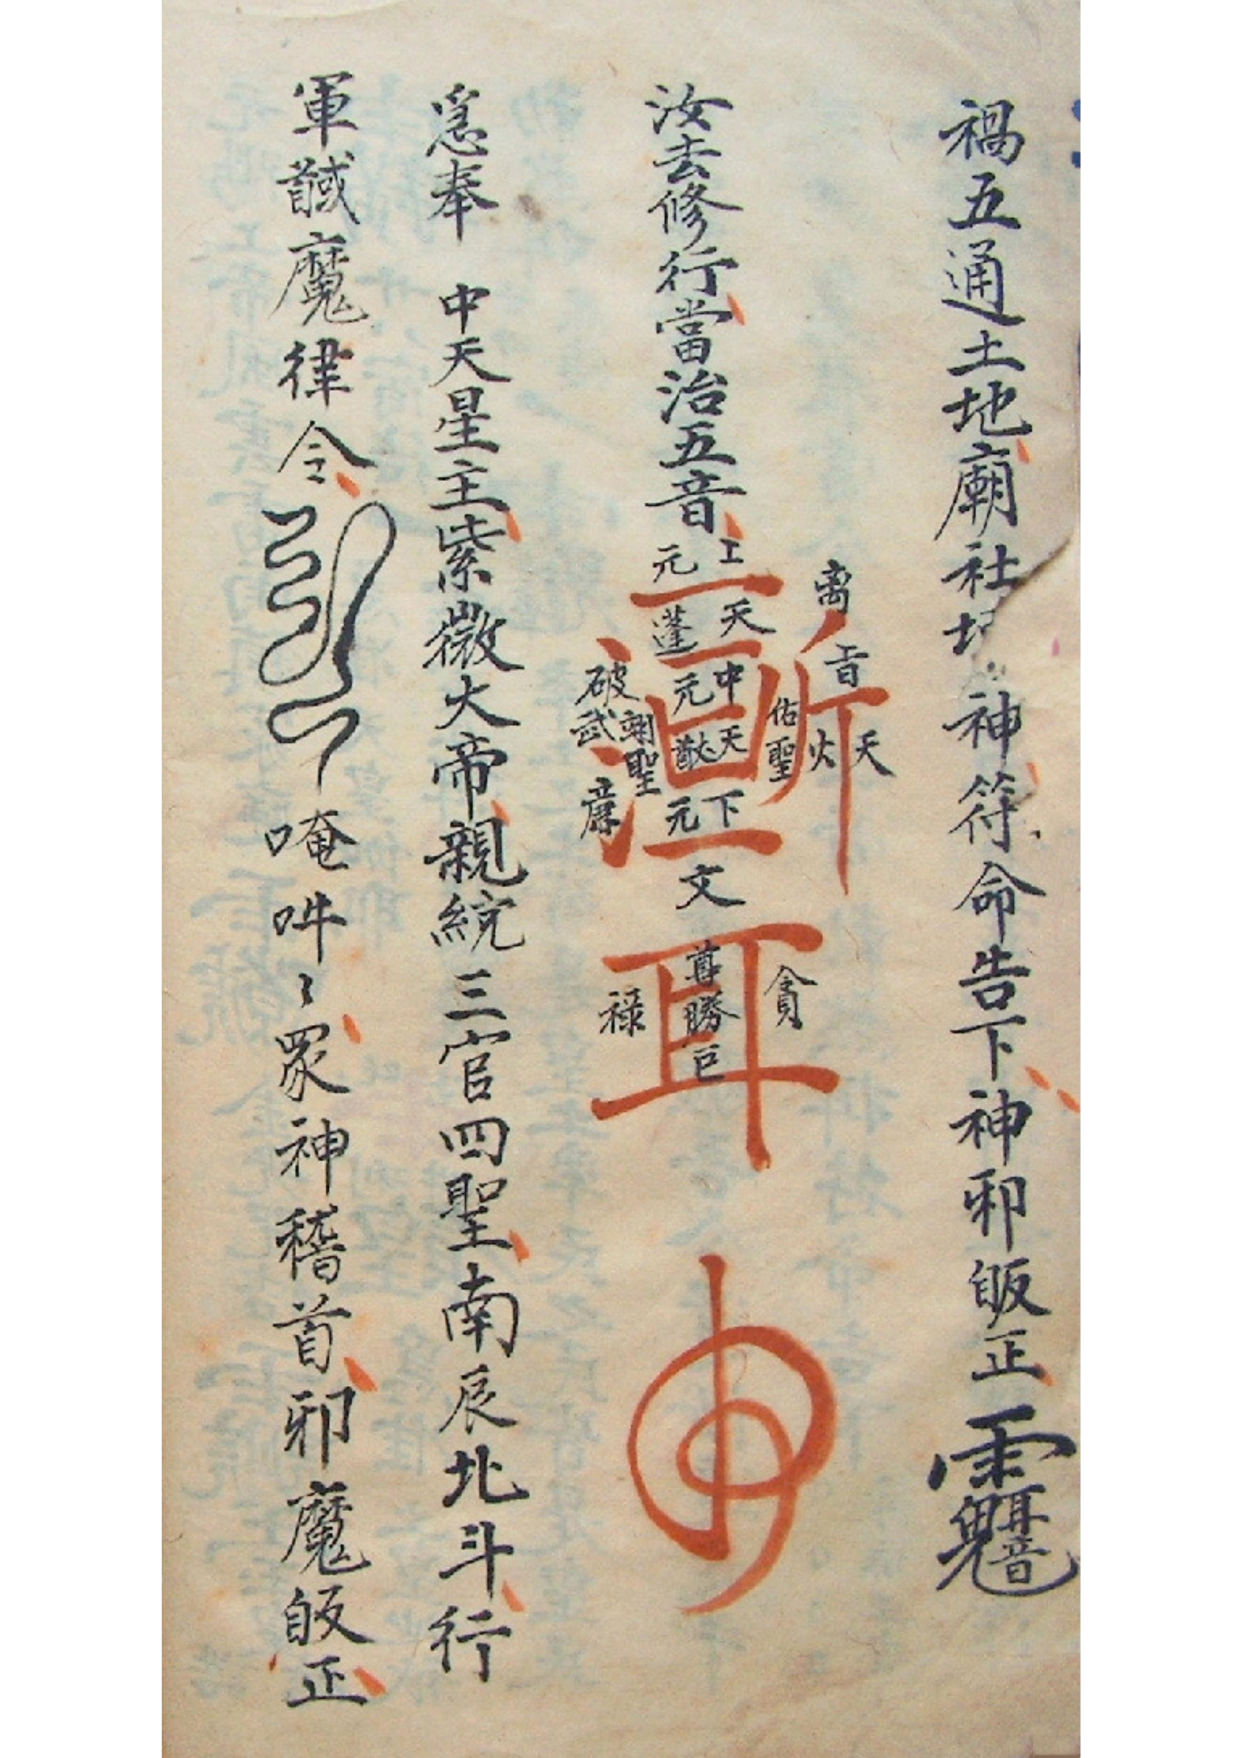 禍五通土地廟社神符命告下神邪皈正
汝去修行當治五音
元 工
蓬 天
元 中
猷 天
元 下
文
离
天
火
佑聖
破
武
翊聖
廉
尊勝
巨
貪
祿
奉 中天星主紫微大帝親統三官四聖南辰北斗行
軍馘魔律令 唵吽〻眾神稽首邪魔皈正